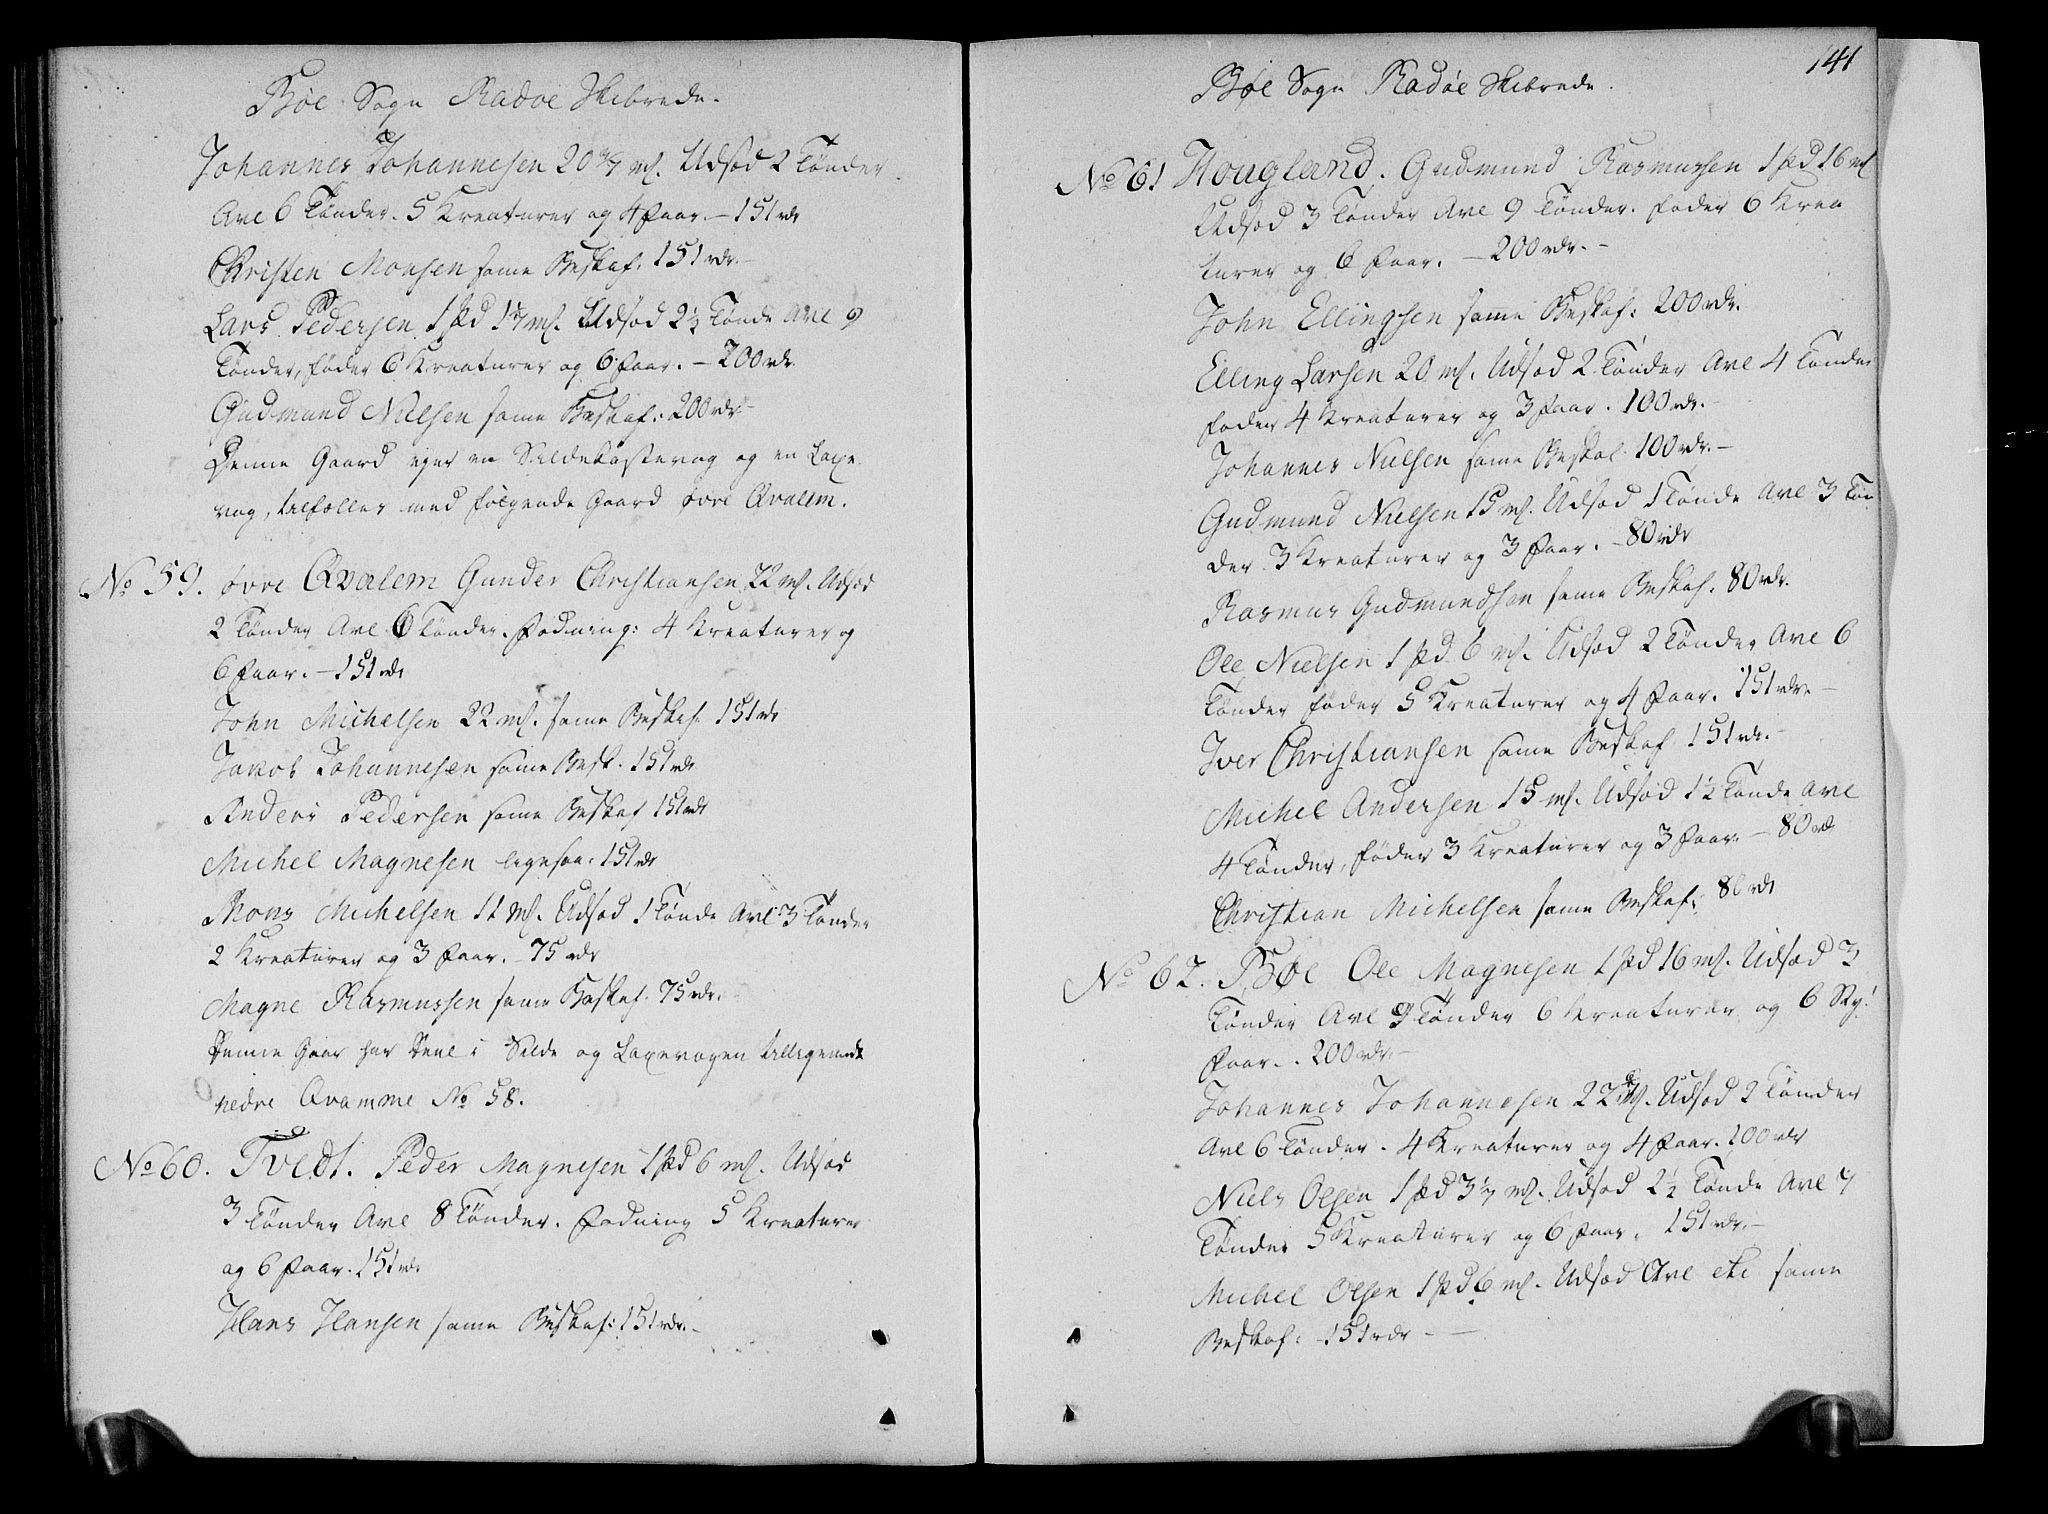 Bøe Sogn Radøe Skibrede.
Johannes Johannesen 20 3/7 mk. Udsæd 2 Tønder
Avl 6 Tønder. 5 Kreaturer og 4 Faar. – 151 rdr
Christen Monsen same Beskaf. 151 rdr. –
Lars Pedersen 1 pd mk. Udsæd 2½ Tønde Avl 9
Tønder, føder 6 Kreaturer og 6 Faar. – 200 rdr.
Gudmund Nielsen same Beskaf: 200 rdr –
Denne Gaard eger en Sildekastevog og en Laxe
vog, tilfælles med følgende Gaard øvre Qvalem.
No 59. øvre Qvalem Gunder Christiansen 22 mk. Udsæd
2 Tønder Avl 6 Tønder. Fødning: 4 Kreaturer og
6 Faar. – 151 rdr
John Michelsen 22 mk. same Beskaf. 151 rdr
Jakob Johannesen same Besk. 151 rdr
Anders Pedersen same Beskaf 151 rdr
Michel Magnesen legesaa. 151 rdr
Mons Michelsen 11 mk. Udsæd 1 Tønde Avl 3 Tønder
2 Kreaturer og 3 Faar. – 75 rdr
Magne Rasmussen same Beskaf. 75 rdr.
Denne Gaar har Deel i Silde og Laxevogen tilligemed
nedre Qvamme No 58.
No 60. Tvedt. Peder Magnesen 1 pd 6 mk. Udsæd
3 Tønder Avl 8 Tønder. Fødning 5 Kreaturer
og 6 Faar. 151 rdr
Hans Hansen same Beskaf: 151 rdr. –
141
Bøe Sogn Radøe Skibrede.
No 61 Hougland. Gudmund Rasmussen 1 pd 16 mk
Udsæd 3 Tønder Avl 9 Tønder. føder 6 Krea
turer og 6 Faar. – 200 rdr. –
John Ellingsen same Beskaf: 200 rdr.
Elling Larsen 20 mk. Udsæd 2 Tønder Avl 4 Tønder
føder 4 Kreaturer og 3 Faar. 100 rdr. –
Johannes Nielsen same Beskaf 100 rdr. –
Gudmund Nielsen 15 mk. Udsæd 1 Tønde Avl 3 Tøn
der 3 Kreaturer og 3 Faar. – 80 rdr
Rasmus Gudmundsen same Beskaf. 80 rdr.
Ole Nielsen 1 pd 6 mk. Udsæd 2 Tønder Avl 6
Tønder føder 5 Kreaturer og 4 Faar. 151 rdr. –
Iver Christiansen same Beskaf 151 rdr. –
Michel Andersen 15 mk. Udsæd 1½ Tønde Avl
4 Tønder, føder 3 Kreaturer og 3 Faar. – 80 rdr
Christian Michelsen same Beskaf; 80 rdr
No 62. Bøe Ole Magnesen 1 pd 16 mk. Udsæd 3
Tønder Avl 9 Tønder 6 Kreaturer og 6 Sty:
Faar. . 200 rdr. –
Johannes Johannesen 22 mk. Udsæd 2 Tønder
Avl 6 Tønder. 4 Kreaturer og 4 Faar. 100 rdr
Niels Olsen 1 pd 3 1/7 mk. Udsæd 2½ Tønde Avl 7
Tønder 5 Kreaturer og 6 Faar. 151 rdr. –
Michel Olsen 1 pd 6 mk. Udsæd Avl etc same
Beskaf: – 151 rdr – –